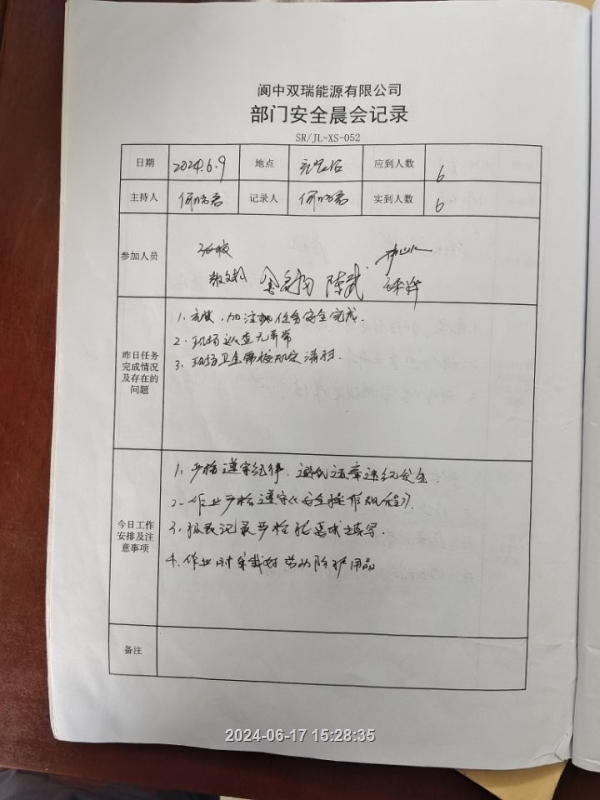 阆中双瑞能源有限公司
部门安全晨会记录
SR/JL-XS-052
日期 2024.6.9 地点 应到人数 6
主持人 记录人 实到人数 6
参加人员
陈武
昨日任务
完成情况
及存在的
问题
1. 加注 任务安全完成.
2. 现场巡查无异常
3. 现场卫生 按规定清扫.
今日工作
安排及注
意事项
1、严格遵守纪律, 违章违纪发生.
2、作业严格遵守《安全操作规程》.
3、报表记录严格按要求填写.
4. 作业时穿戴好劳动防护用品
备注
2024-06-17 15:28:35